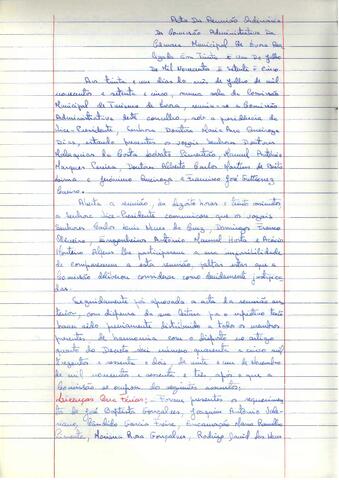 Acta Da Reunião Ordinária
Da Comissão Administrativa Da
Câmara Municipal De Évora Rea
lizada Em Trinta E Um De Julho
De Mil Novecentos E Setenta E Cinco.
Aos trinta e um dias do mês de Julho de mil
novecentos e setenta e cinco, numa sala da Comissão
Municipal de Turismo de Évora, reuniu-se a Comissão
Administrativa deste concelho, sob a presidência da
Vice-Presidente, senhora Doutora Maria Ana
Dias, estando presentes os vogais senhores Doutora
da Costa Manuel António
Marques Doutor Alberto Carlos Martins de Brito
Lima e Jerónimo e Francisco José
Aberta a reunião, às dezoito horas e trinta minutos,
a senhora Vice-Presidente comunicou que os vogais
senhores Carlos Luís Nunes da Cruz, Domingos Franco
Oliveira, Engenheiros António Manuel Horta e Acácio
Monteiro lhe participaram a sua impossibilidade
de comparecerem a esta reunião, faltas estas que a
Comissão deliberou considerar como devidamente justifica-
das.
Seguidamente foi aprovada a acta da reunião an-
terior, com dispensa da sua leitura por o respectivo texto
haver sido previamente distribuído a todos os membros
presentes, de harmonia com o disposto no artigo
quarto do Decreto Lei número quarenta e cinco mil
trezentos e sessenta e dois de vinte e um de Novembro
de mil novecentos e sessenta e três, após o que a
Comissão se ocupou dos seguintes assuntos:
Licenças Para Férias: - Foram presentes os requerimen-
tos de José Baptista Gonçalves, Joaquim António
Cândido Garcia Freire, Encarnação Maria Ramalho
Mariana Rosa Gonçalves, Rodrigo David